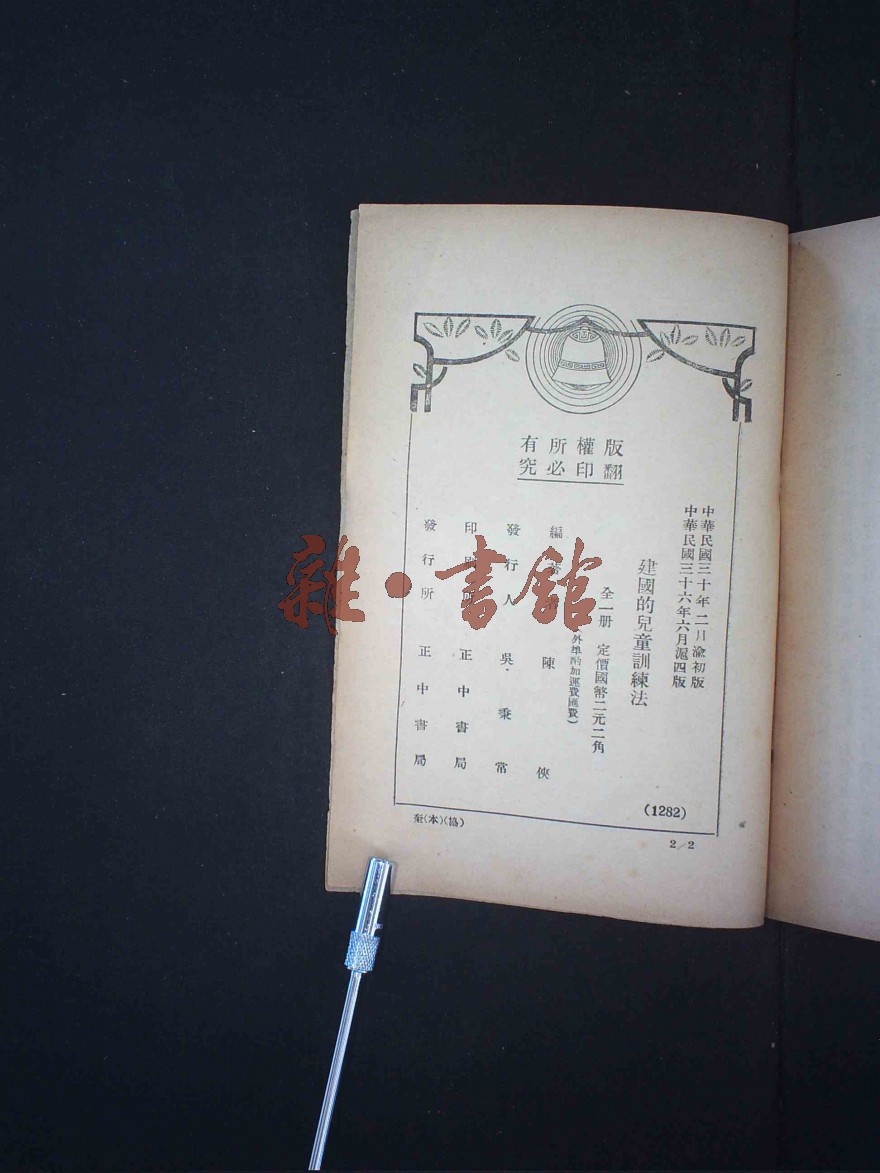 版權所有
翻印必究
中華民國三十年二月渝初版
中華民國三十六年六月滬四版
建國的兒童訓練法
全一冊 定價國幣二元二角
外埠酌加運費匯費)
編 陳俠
發行人 吳秉常
印 正中書局
發行所 正中書局
(1282)
(本)(協)
2/2
雜·書館